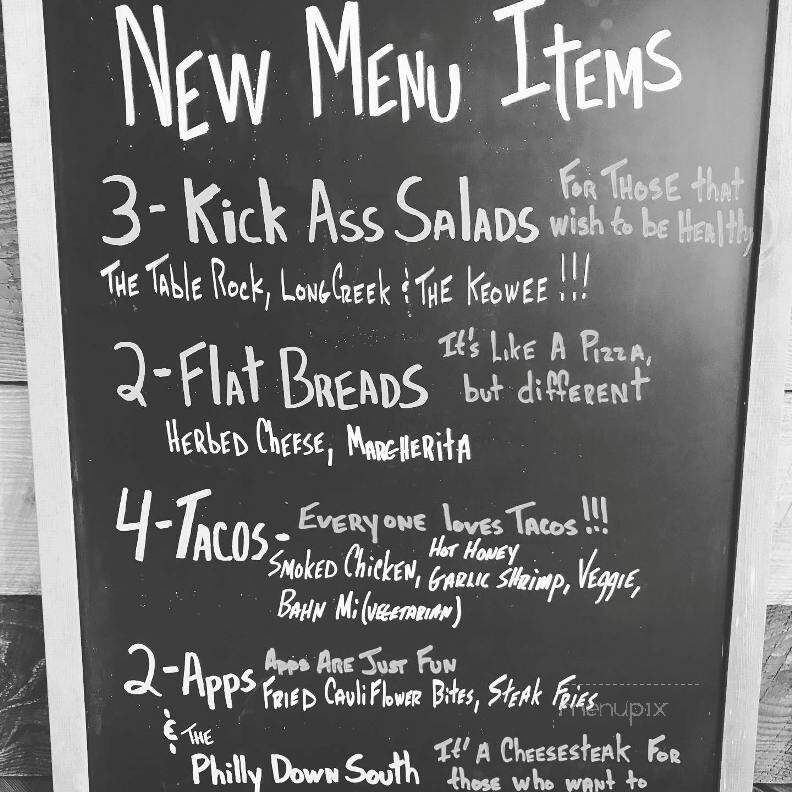 NEW MENU ITEMS
3-Kick Ass SALADS FOR THOSE that
wish to be HEALthy
THE TABLE ROCK, LONG CREEK & THE KEOWEE !!!
2-FLAT BREADS It's LIKE A PIZZA,
but diffERENT
HERBED CHEESE, MARGHERITA
4-TACOS- EVERYONE loves TACOS!!!
SMOKED CHICKEN, HOT HONEY
GARLIC SHRIMP, VEGGIE,
BAHN Mi (VEGETARIAN)
2-Apps Apps ARE JUST FUN
FRIED CAULIFLOWER BITES, STEAK FRIES
menupix
& THE
Philly DOWN SOUTH It' A CHEESESTEAK FOR
those who want to